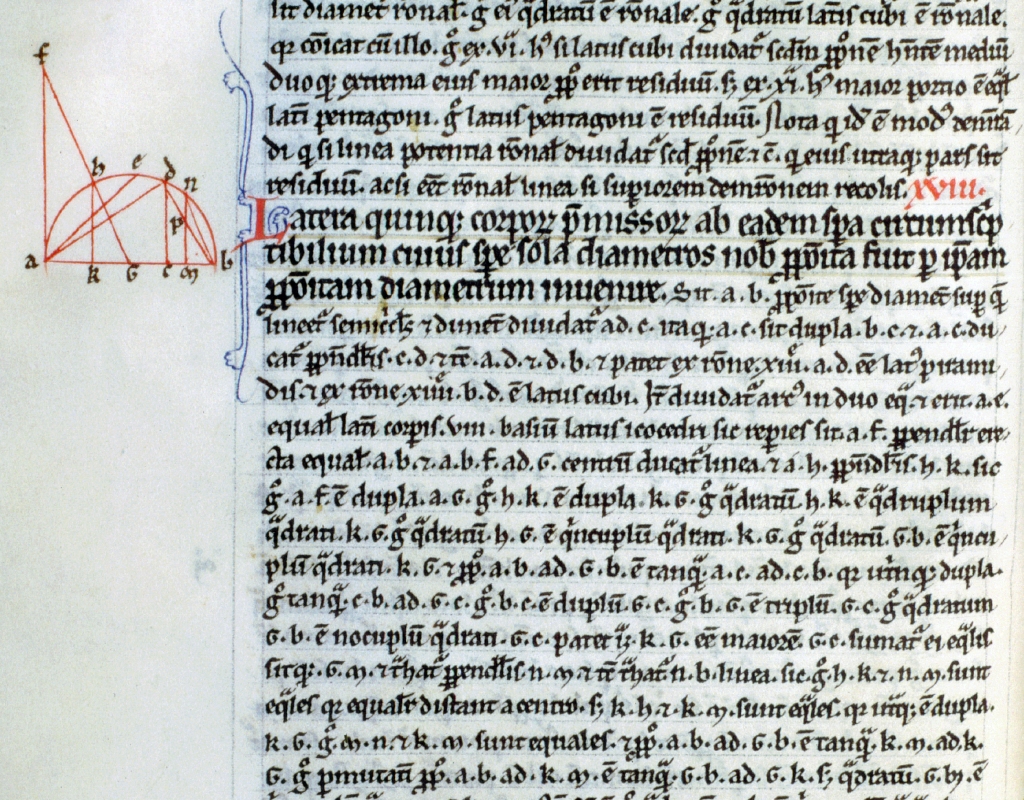 f
h e d n
p
a k G c m b
lit diamet ronał. g̊ ei q̈dratū ē ronale. g̊ q̈dratū latis cubi ē ronale.
qꝛ cōicat cū illo. g̊ ex. vi. hꝰ si latus cubi diuidatᷓ scdm ꝓpōnē hn̄tē mediū
duoqꝫ extrema eius maior ꝓpō erit residuū. sꝫ ex. xi. hꝰ maior portio ē eq̈l
lati pentagoni. g̊ latus pentagoni ē residuū. Nota q id ē modꝰ demrā
di q si linea potentia ronał diuidatᷓ scd ꝓpōnē ⁊c̄. q eius utraqꝫ pars sit
residuū. acsi eēt ronał linea si superiorem demrōnem recolis. xviii.
Latera quinqꝫ corpoꝝ p̄missoꝝ ab eadem spa circumsc̄p
tibilium cuius spe sola diametros nob ꝓpōita fuit p ip̄am
ꝓpōitam diametrum inuenire. Sit. a. b. ꝓpōite spe diamet sup q̄
lineet semicclꝫ ⁊ dimet diuidatᷓ ad. c. itaqꝫ. a. c. sit dupla. b. c. ⁊ a. c. du
catᷓ ꝑpndlis. c. d. ⁊ tē. a. d. ⁊. d. b. ⁊ patet ex rōne. xiii. a. d. eē latꝰ pirami
dis. ⁊ ex rōne. xiiii. b. d. ē latus cubi. It diuidatᷓ arcꝰ in duo eq̈. ⁊ erit. a. e.
equał lati corpis. viii. basiū latus icocedri sic repies sit. a. f. ꝑpendlr ere
cta equał. a. b. ⁊. a. b. f. ad. G. centrū ducatᷓ linea. ⁊ a. h. ꝑpndlis. h. k. sic
g̊. a. f. ē dupla. a. G. g̊. h. k. ē dupla. k. G. g̊ q̈dratū. h. k. ē q̈druplum
q̈drati. k. G. g̊ q̈dratū. h. G. ē q̇ncuplū q̈drati. k. G. g̊ q̈dratū. G. b. ē q̇ncu
plū q̈drati. k. G. ⁊ ꝓpō. a. b. ad. G. b. ē tanqᷓ. a. c. ad. c. b. qꝛ utr̄nqꝫ dupla.
g̊ tanqᷓ. c. b. ad. G. c. g̊. b. c. ē duplū. G. c. g̊. b. G. ē triplū. G. c. g̊ q̈dratum
G. b. ē nocuplū q̈drati. G. c. patet iꝫ. k. G. eē maiorē. G. c. sumatᷓ ei eq̈lis
sitqꝫ. G. m. ⁊ thatᷓ ꝑpendlis. n. m. ⁊ tē thatᷓ. n. b. linea. sic. g̊. h. k. ⁊. n. m. sunt
eq̈les qꝛ equalr distant a centro. sꝫ k. h. ⁊ k. m. sunt eq̈les. qꝛ utqꝫ ē dupla.
k. G. g̊. m. n. ⁊ k. m. sunt equales. ⁊ ꝓpō. a. b. ad. G. b. ē tanqᷓ. k. m. ad. k.
G. g̊ pmutati ꝓpō. a. b. ad. k. m. ē tanqᷓ. G. b. ad. G. k. sꝫ q̈dratū. G. b. ē